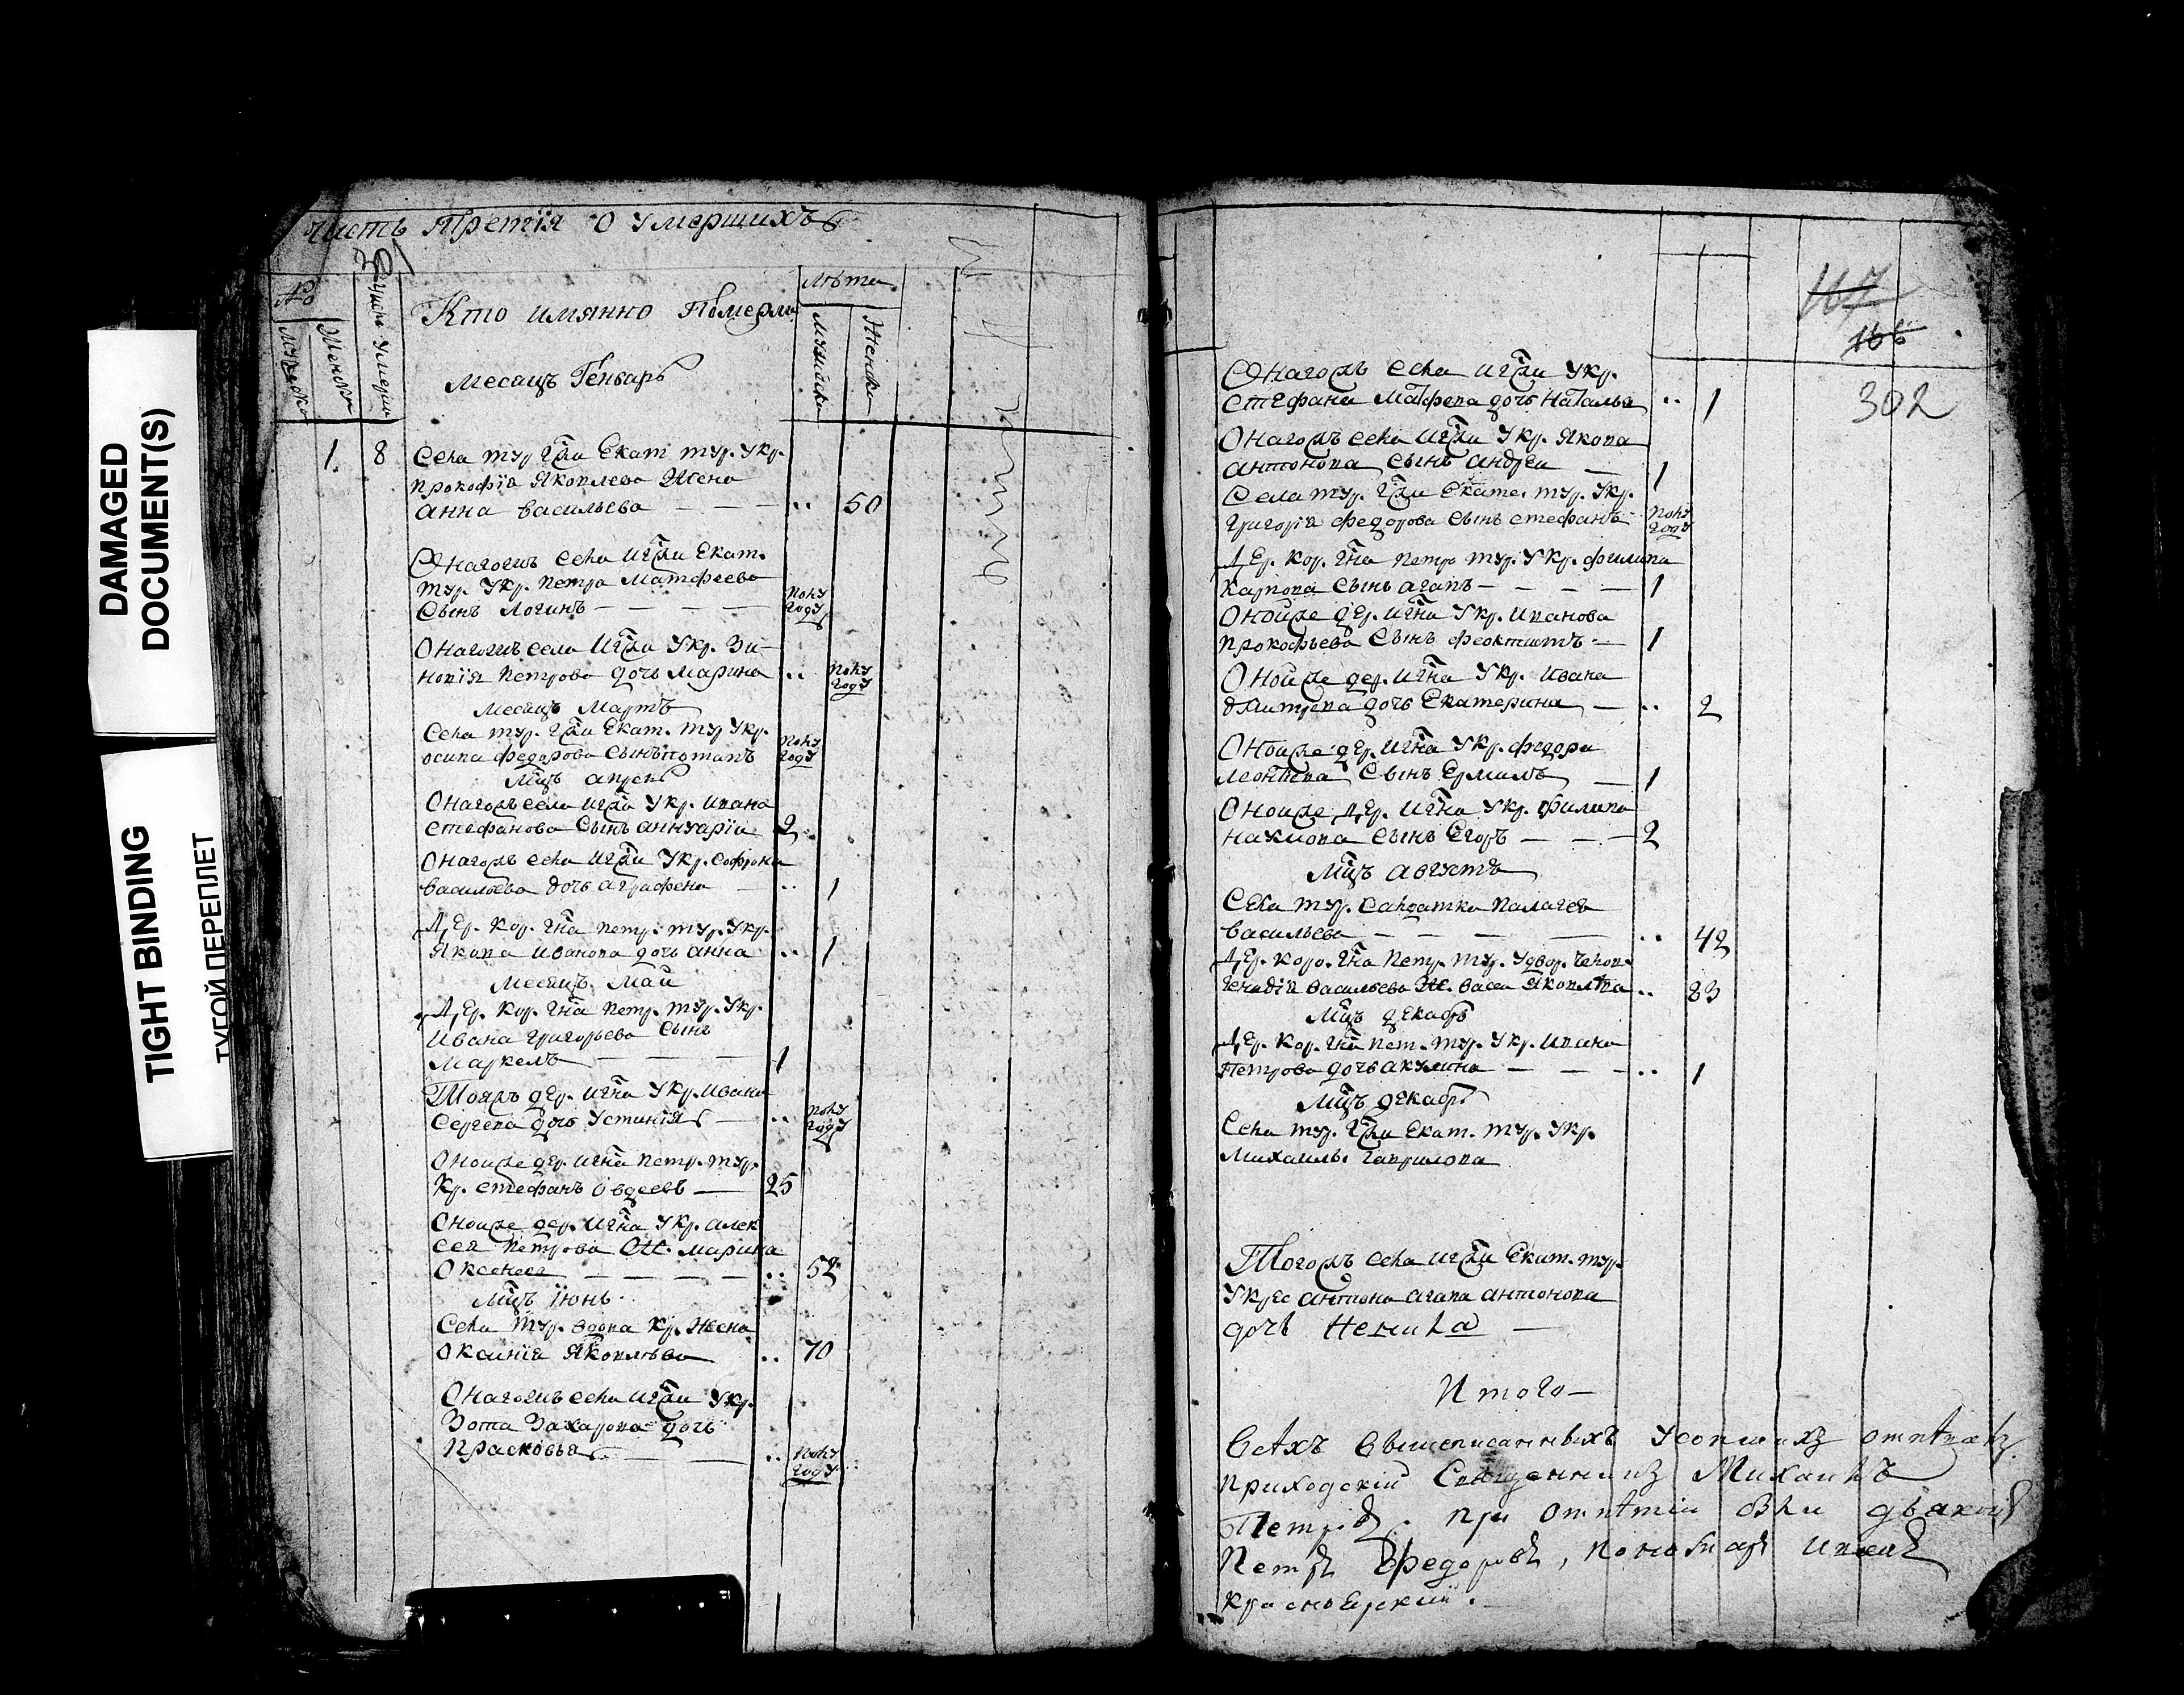 DAMAGED
DOCUMENT(S)
TIGHT BINDING
ТУГОЙ ПЕРЕПЛЕТ
Часть Третїя О Умершихъ
301
№
Кто имянно Померли
Лѣта
Женска
Месяцъ Генварь
1 8 Села тур. гжи Екат тур. Укр.
Прокофїя Яковлева Жена
Анна Васильева 50
Онагожъ села Игжи Екат.
тур. Укр. Петра Матфеева
Сынъ Логинъ полу году
Онагожъ села Игжи Укр. Зи-
новїя Петрова дочь Марина полу году
Месяцъ Мартъ
Села тур. гжи Екат. тур Укр.
осипа федорова Сынъ потапъ полу году
Мцъ апрель
Онагожъ села Игжи Укр. Ивана
Стефанова Сынъ аннуарїи 2
Онагожъ села Игжи Укр. Софрона
Васильева дочь аграфена 1
Дер. Кор. гна петр. тур. Укр.
Якова Иванова дочь анна 1
Месяцъ Маи
Дер. Кор. гна петр. тур. Укр.
Ивана григорьева Сынъ
Маркелъ 1
Тояжъ дер. Игна Укр. Ивана
Сергева дочь Устинїя полу году
Оноиже дер. Игна петр. тур.
Кр. Стефанъ Овдеевъ 25
Оноиже дер. Игна Укр. Алек
сея Петрова Ж. Марина
Оксенева 52
Мцъ Іюнь
Села тур. вдова Кр. Жена
Оксинїя Яковлѣва 70
Онагожъ села Игжи Укр.
Зота Захарова дочь
Прасковья полу году
167
166
302
Онагожъ села Игжи Укр.
Стефана Матфева дочь Наталья 1
Онагожъ села Игжи Укр. Якова
Антонова Сынъ андреи 1
Села тур. гжи Екате. тур. Укр.
григорїя федорова Сынъ Стефанъ полу году
Дер. Кор. гна петр. тур. Укр. филипа
Карпова Сынъ агапъ 1
Оноиже дер. Игна Укр. Иванова
Прокофьева Сынъ феоктистъ 1
Оноиже дер. Игна Укр. Ивана
дмитрева дочь Екатерина 2
Оноиже дер. Игна Укр. федора
Леонтева Сынъ Ермилъ 1
Оноиже Дер. Игна Укр. Филипа
Наумова Сынъ Егоръ 2
Мцъ августъ
Села тур. Салдатка Палагея
Васильева 42
Дер. Коро. гна петр. тур. Удвор. челов.
генадїя Васильева Ж. Васса Яковлева 23
Мцъ декабрь
Дер. Кор. гна пет. тур. Укр. Ивана
Петрова дочь акулина 1
Мцъ декабрь
Села тур. гжи Екат. тур. Укр.
Михаилъ гаврилова
Тогожъ села Игжи Екат. тур.
Укрес антона агапа антонова
дочь Ненила
Итого
Всѣхъ Вышеписанныхъ Усопшихъ отпѣвалъ
приходскїй Священникъ Михаилъ
Петровъ. при отпѣтїи были дьяконъ
Петръ Федоровъ, пономарь Иванъ
Красноярскїй.